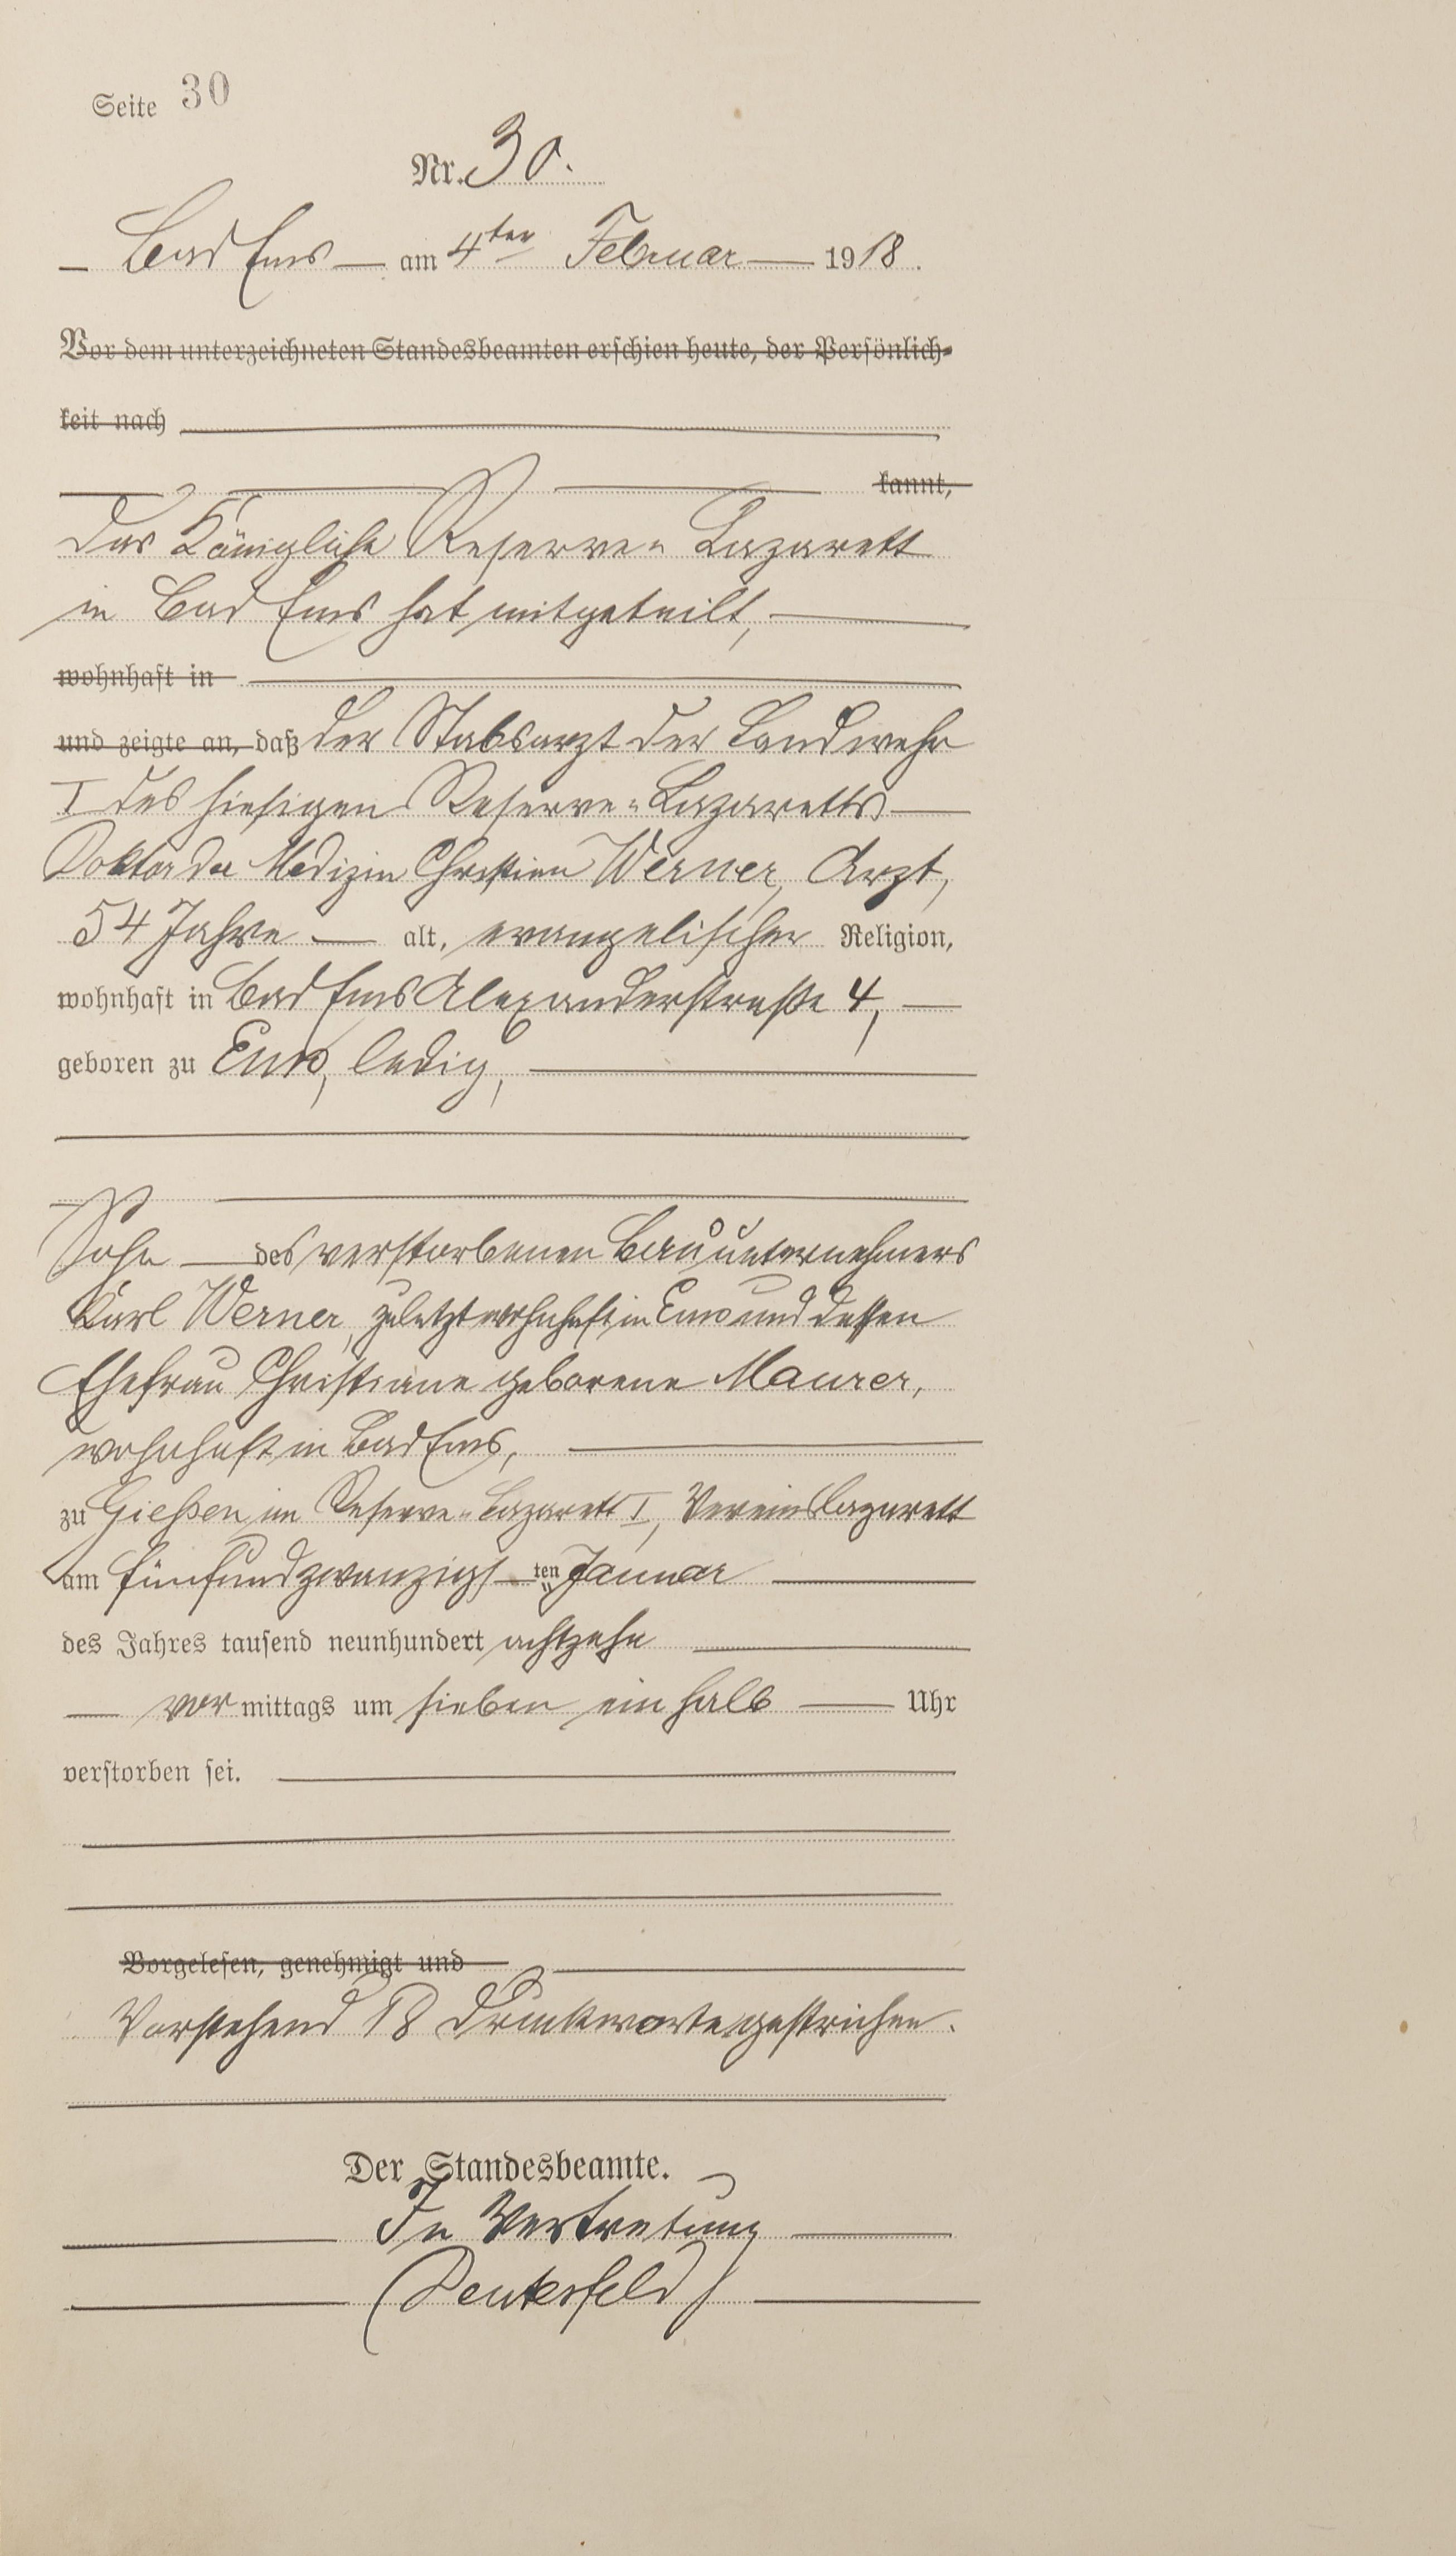 Seite 30
Nr. 30.
Bad Ems — am 4ten Februar — 1918.
Vor dem unterzeichneten Standesbeamten erschien heute, der Persönlich-
keit nach
kannt,
Das Königliche Reserve-Lazarett
in Bad Ems hat mitgeteilt, —
wohnhaft in
und zeigte an, daß der Stabsarzt der Landwehr
I des hiesigen Reserve-Lazaretts —
Doktor der Medizin Christian Werner, Arzt,
54 Jahre — alt, evangelischer Religion,
wohnhaft in Bad Ems Alexanderstraße 4, —
geboren zu Ems, ledig, —
Sohn — des verstorbenen Bauunternehmers
Karl Werner, zuletzt wohnhaft in Ems und dessen
Ehefrau Christiane geborene Maurer,
wohnhaft in Bad Ems, —
zu Gießen im Reserve-Lazarett I, Vereinslazarett
am fünfundzwanzigs — ten Januar —
des Jahres tausend neunhundert achtzehn —
— vor mittags um sieben ein halb — Uhr
verstorben sei. —
Vorgelesen, genehmigt und
Vorstehend 18 Druckworte gestrichen.
Der Standesbeamte.
In Vertretung